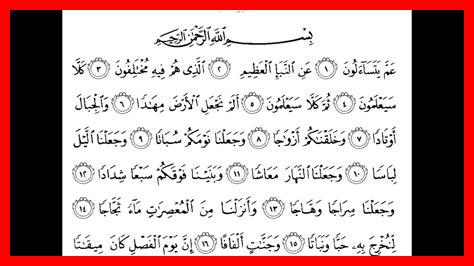 بِسْمِ ٱللَّهِ ٱلرَّحْمَٰنِ ٱلرَّحِيمِ
عَمَّ يَتَسَآءَلُونَ ١ عَنِ ٱلنَّبَإِ ٱلْعَظِيمِ ٢ ٱلَّذِى هُمْ فِيهِ مُخْتَلِفُونَ ٣ كَلَّا
سَيَعْلَمُونَ ٤ ثُمَّ كَلَّا سَيَعْلَمُونَ ٥ أَلَمْ نَجْعَلِ ٱلْأَرْضَ مِهَٰدًا ٦ وَٱلْجِبَالَ
أَوْتَادًا ٧ وَخَلَقْنَٰكُمْ أَزْوَٰجًا ٨ وَجَعَلْنَا نَوْمَكُمْ سُبَاتًا ٩ وَجَعَلْنَا ٱلَّيْلَ
لِبَاسًا ١٠ وَجَعَلْنَا ٱلنَّهَارَ مَعَاشًا ١١ وَبَنَيْنَا فَوْقَكُمْ سَبْعًا شِدَادًا ١٢
وَجَعَلْنَا سِرَاجًا وَهَّاجًا ١٣ وَأَنزَلْنَا مِنَ ٱلْمُعْصِرَٰتِ مَآءً ثَجَّاجًا ١٤
لِّنُخْرِجَ بِهِۦ حَبًّا وَنَبَاتًا ١٥ وَجَنَّٰتٍ أَلْفَافًا ١٦ إِنَّ يَوْمَ ٱلْفَصْلِ كَانَ مِيقَٰتًا